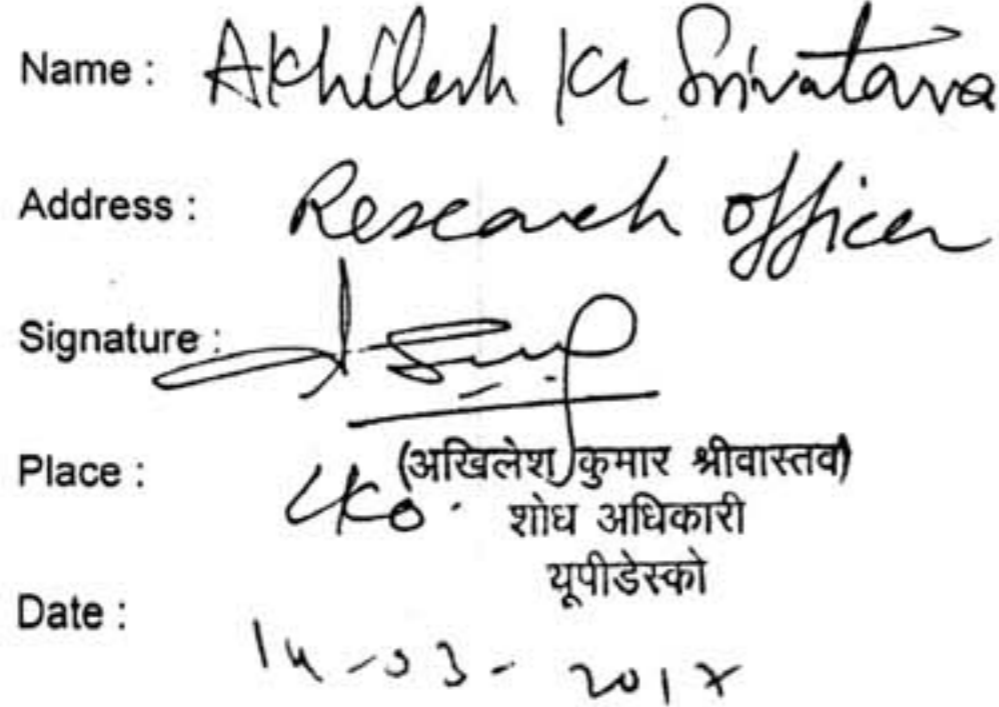 Name : Akhilesh Kr Srivatava
Address : Research Officer
Signature :
Place : LKO. (अखिलेश कुमार श्रीवास्तव)
शोध अधिकारी
यूपीडेस्को
Date : 14-03-2017